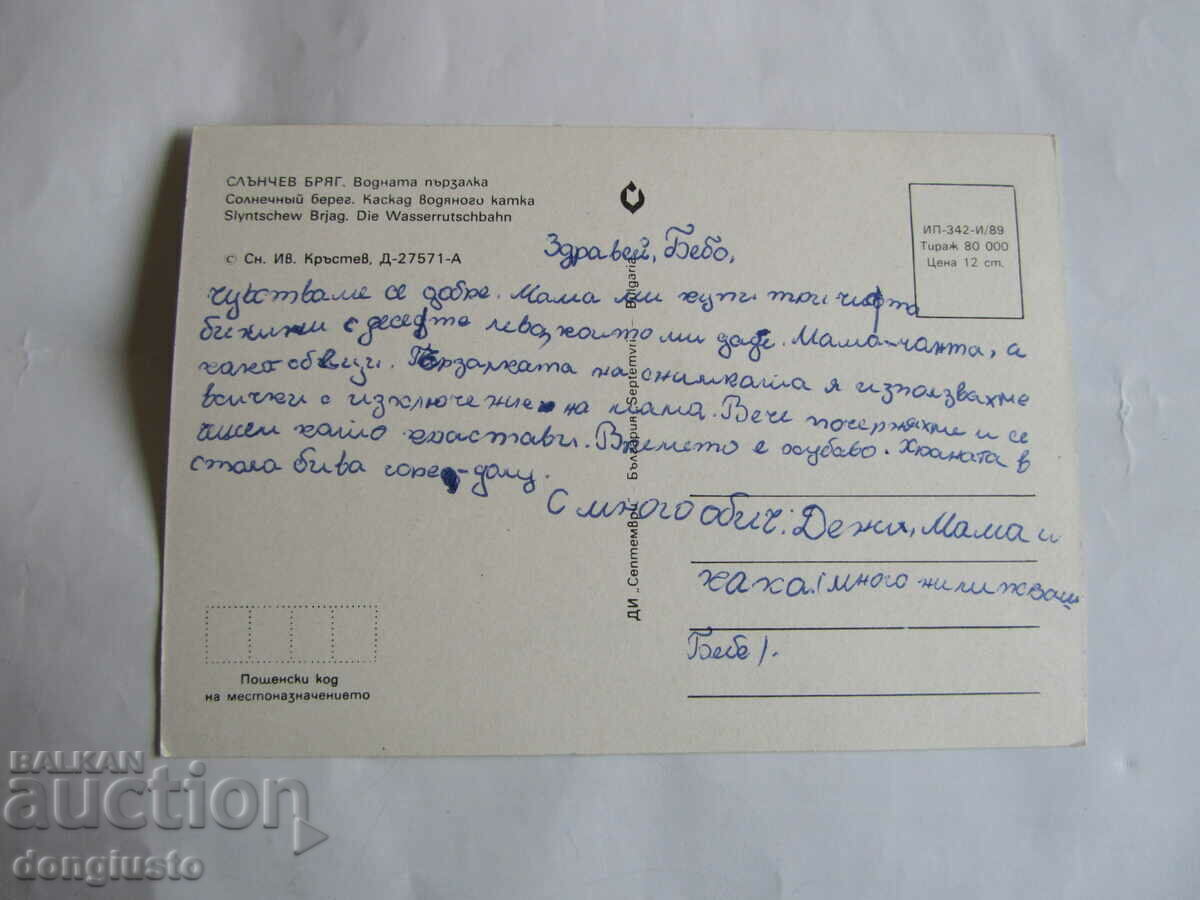 СЛЪНЧЕВ БРЯГ. Водната пързалка
Солнечный берег. Каскад водяного катка
Slyntschew Brjag. Die Wasserrutschbahn
© Сн. Ив. Кръстев, Д-27571-А
ИП-342-И/89
Тираж 80 000
Цена 12 ст.
Здравей, Бебо,
чувстваме се добре. Мама ми купи три чифта
с десетте лева, които ми даде. Мама-чанта, а
кака-обеци. Пързалката на снимката я използвахме
всички с изключение на мама. Вече почерняхме и се
като краставци. Времето е хубаво. Храната в
стола бива горе-долу.
С много обич: Дежи, Мама и
кака. (много
Бебе).
ДИ „Септември" — България • Septemvri — Bulgaria
Пощенски код
на местоназначението
BALKAN
auction
dongiusto